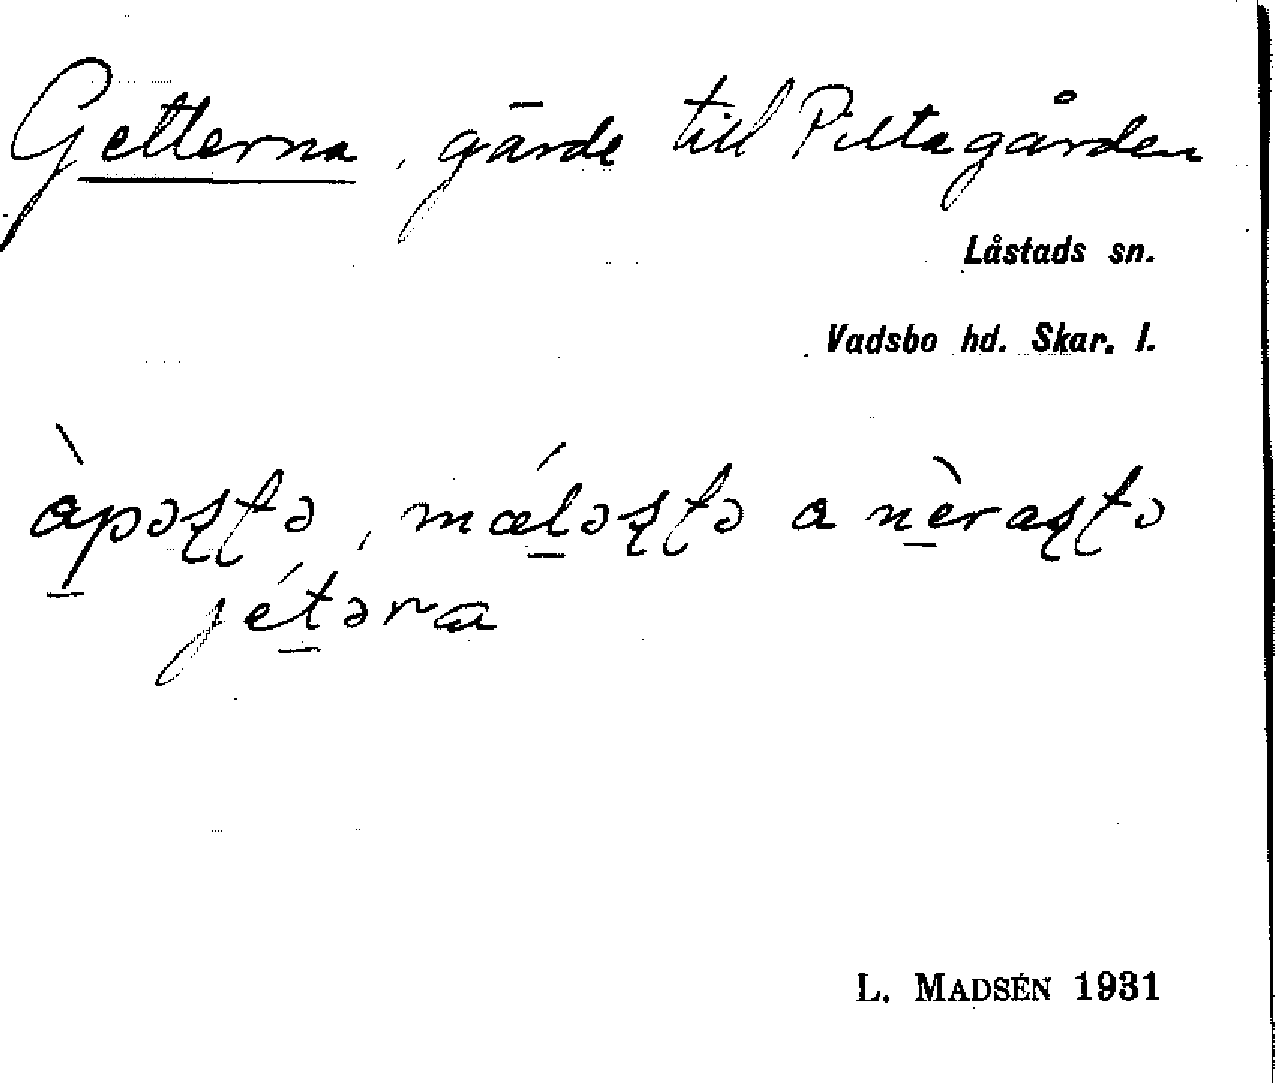 Getterna, gärde till Piltagården
Låstads sn.
Vadsbo hd. Skar. l.
àpəʂʈə, mǽləʂʈə a nèraʂʈə
jétəra
L. MADSÉN 1931